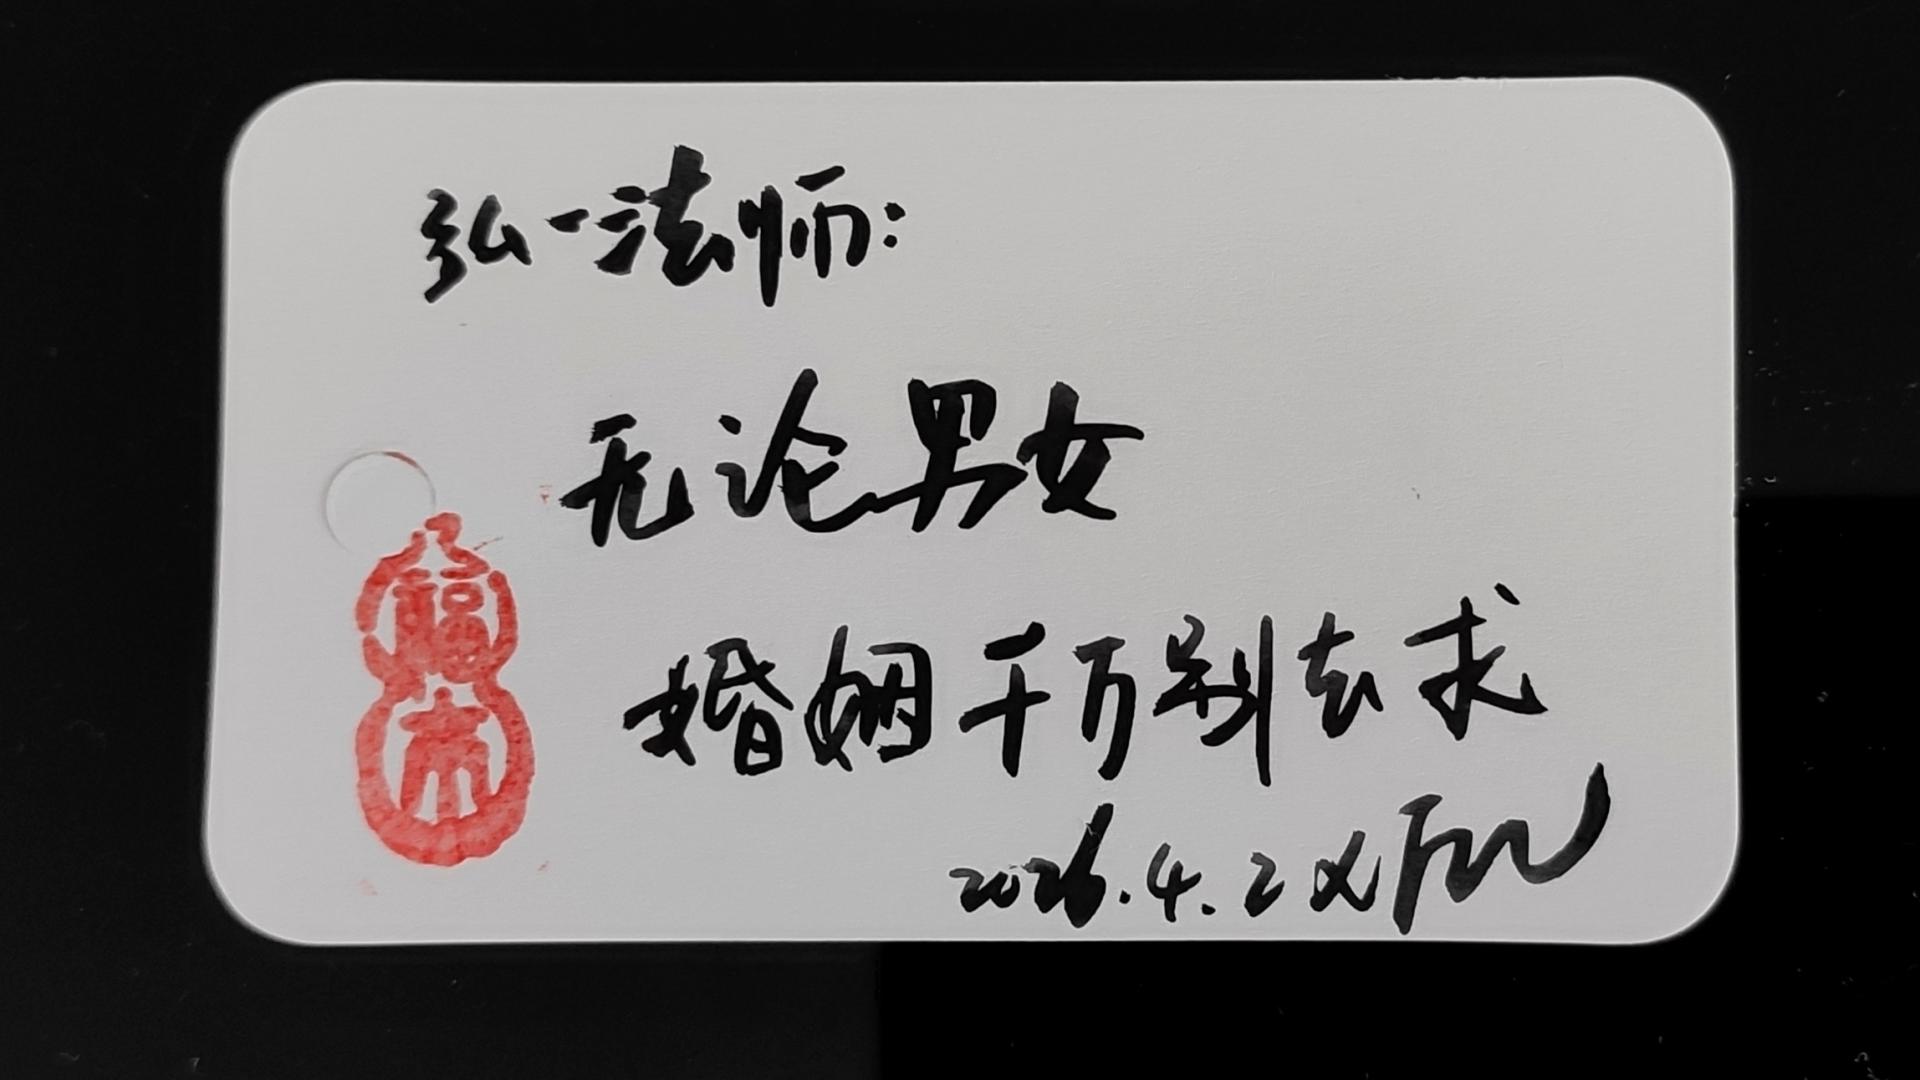 弘一法师:
无论男女
婚姻千万别去求
2026.4.2
福